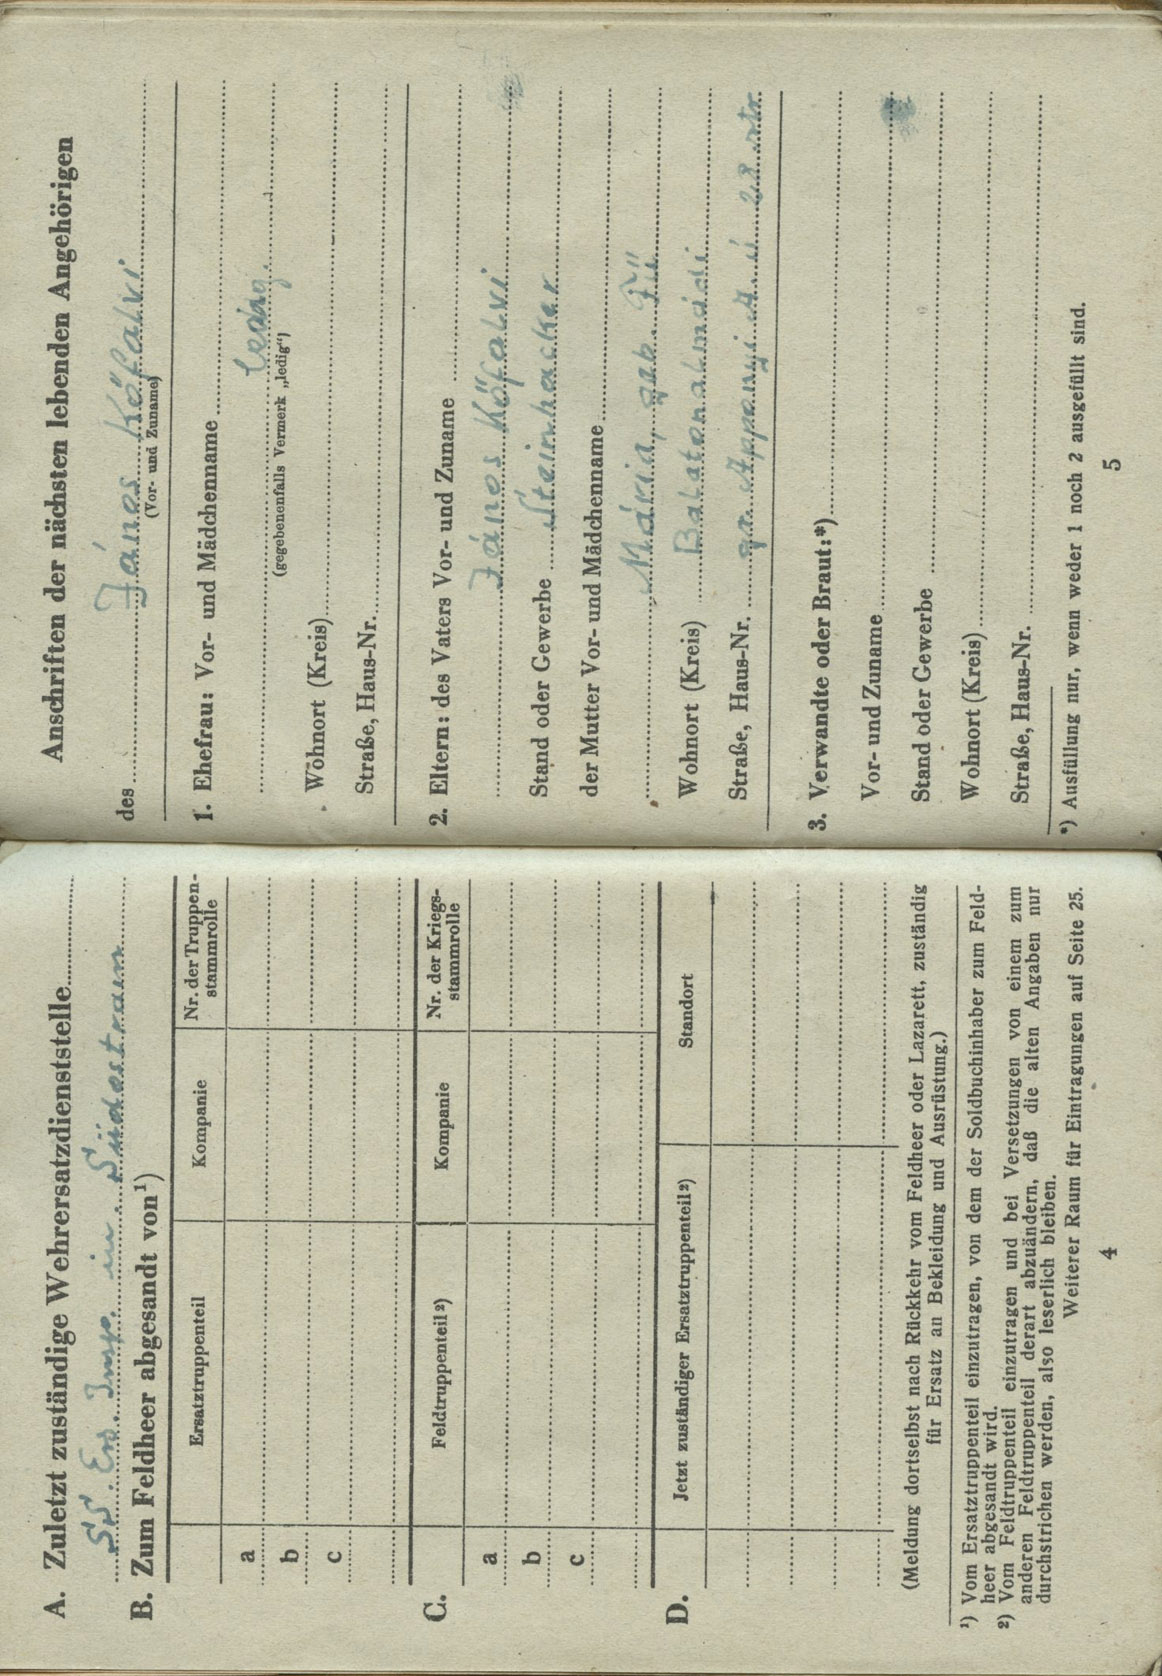 A. Zuletzt zuständige Wehrersatzdienststelle
SS. Ers. Insp. in Südostraum
B. Zum Feldheer abgesandt von¹)
Ersatztruppenteil Kompanie Nr. der Truppen-
stammrolle
a
b
c
C.
Feldtruppenteil²) Kompanie Nr. der Kriegs-
stammrolle
a
b
c
D.
Jetzt zuständiger Ersatztruppenteil²) Standort
(Meldung dortselbst nach Rückkehr vom Feldheer oder Lazarett, zuständig
für Ersatz an Bekleidung und Ausrüstung.)
¹) Vom Ersatztruppenteil einzutragen, von dem der Soldbuchinhaber zum Feld-
heer abgesandt wird.
²) Vom Feldtruppenteil einzutragen und bei Versetzungen von einem zum
anderen Feldtruppenteil derart abzuändern, daß die alten Angaben nur
durchstrichen werden, also leserlich bleiben.
Weiterer Raum für Eintragungen auf Seite 25.
4
Anschriften der nächsten lebenden Angehörigen
des János Köfalvi
(Vor- und Zuname)
1. Ehefrau: Vor- und Mädchenname
ledig.
(gegebenenfalls Vermerk „ledig“)
Wohnort (Kreis)
Straße, Haus-Nr.
2. Eltern: des Vaters Vor- und Zuname
János Köfalvi
Stand oder Gewerbe Steinhacker
der Mutter Vor- und Mädchenname
Mária, geb.
Wohnort (Kreis) Balatonalmádi
Straße, Haus-Nr. gr. Apponyi A. ú 28 str.
3. Verwandte oder Braut:*)
Vor- und Zuname
Stand oder Gewerbe
Wohnort (Kreis)
Straße, Haus-Nr.
*) Ausfüllung nur, wenn weder 1 noch 2 ausgefüllt sind.
5